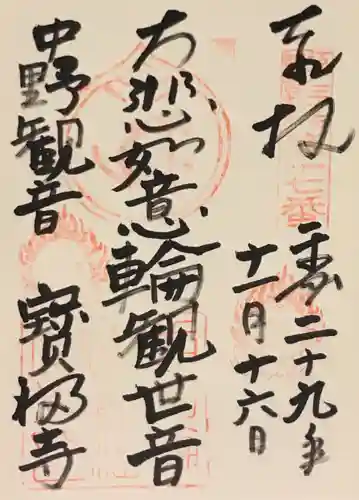 奉拝
平成二十九年
十一月十六日
大悲如意輪観世音
中野観音
寳福寺
七番